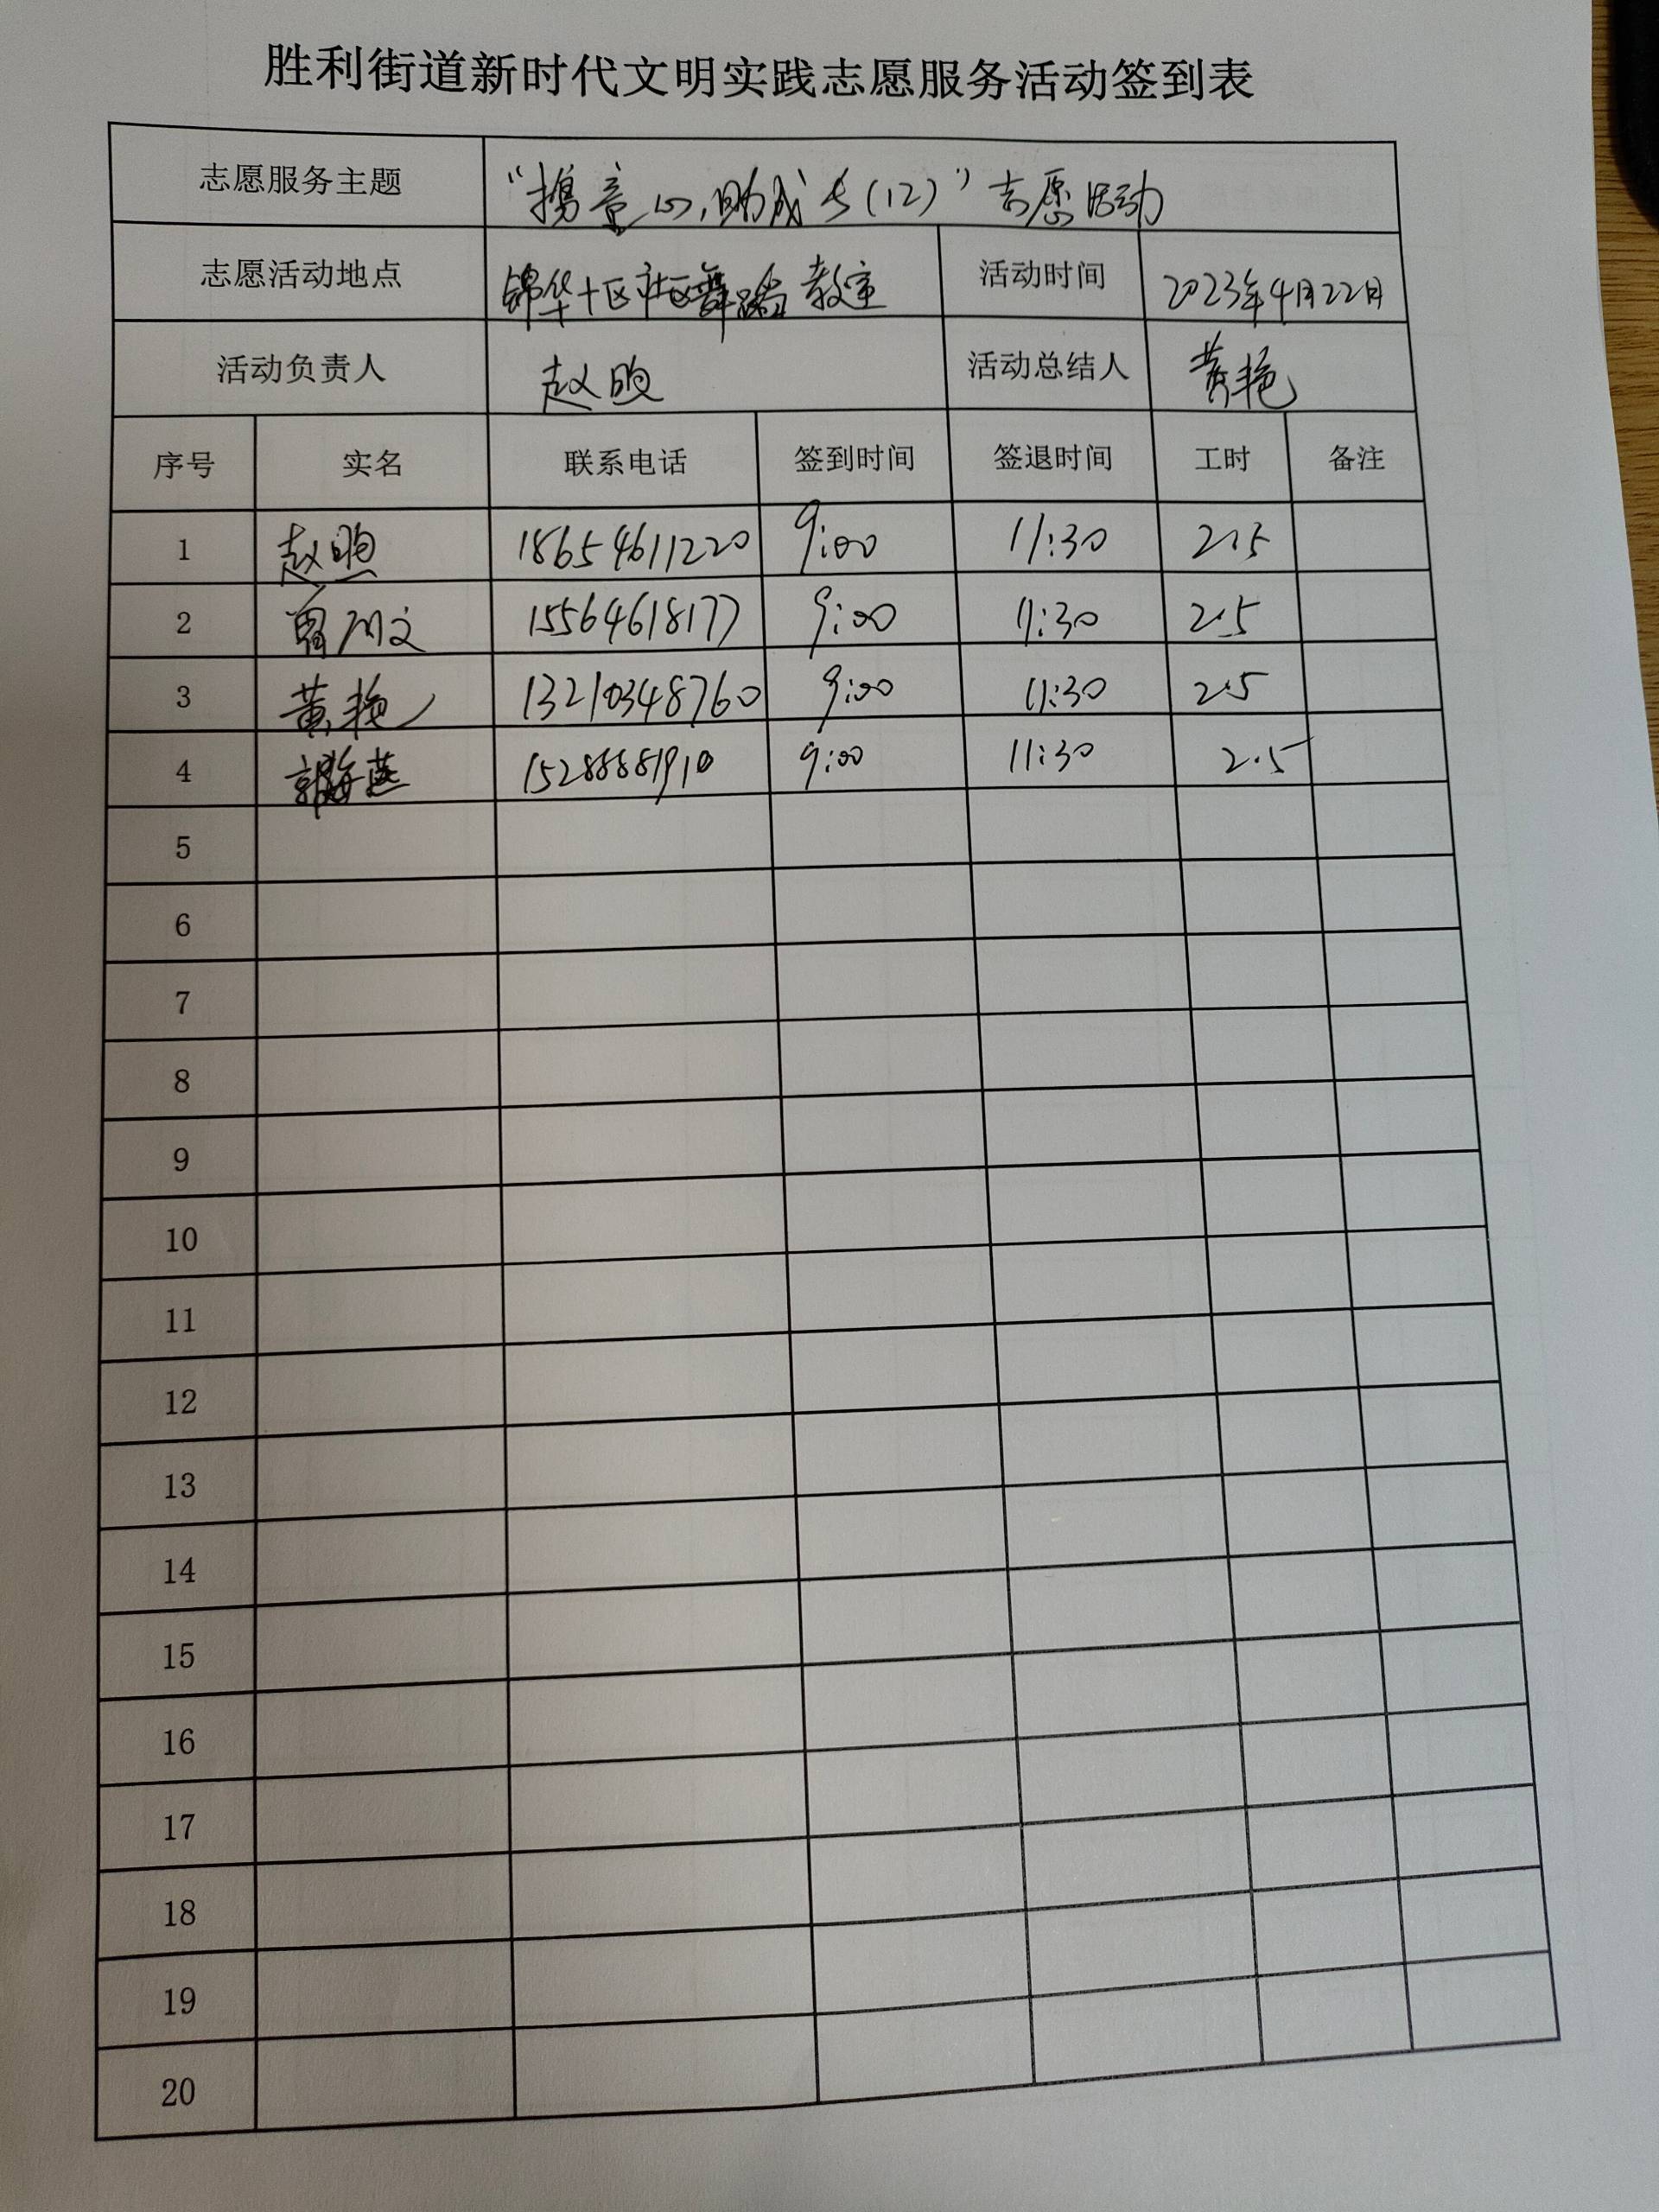 胜利街道新时代文明实践志愿服务活动签到表
志愿服务主题 “携童心,助成长(12)”志愿活动
志愿活动地点 锦华十区社区舞蹈教室 活动时间 2023年4月22日
活动负责人 赵煦 活动总结人 黄艳
序号 实名 联系电话 签到时间 签退时间 工时 备注
1 赵煦 18654611220 9:00 11:30 2.5
2 15564618177 9:00 11:30 2.5
3 黄艳 13210348760 9:00 11:30 2.5
4 郭海燕 15288881910 9:00 11:30 2.5
5
6
7
8
9
10
11
12
13
14
15
16
17
18
19
20